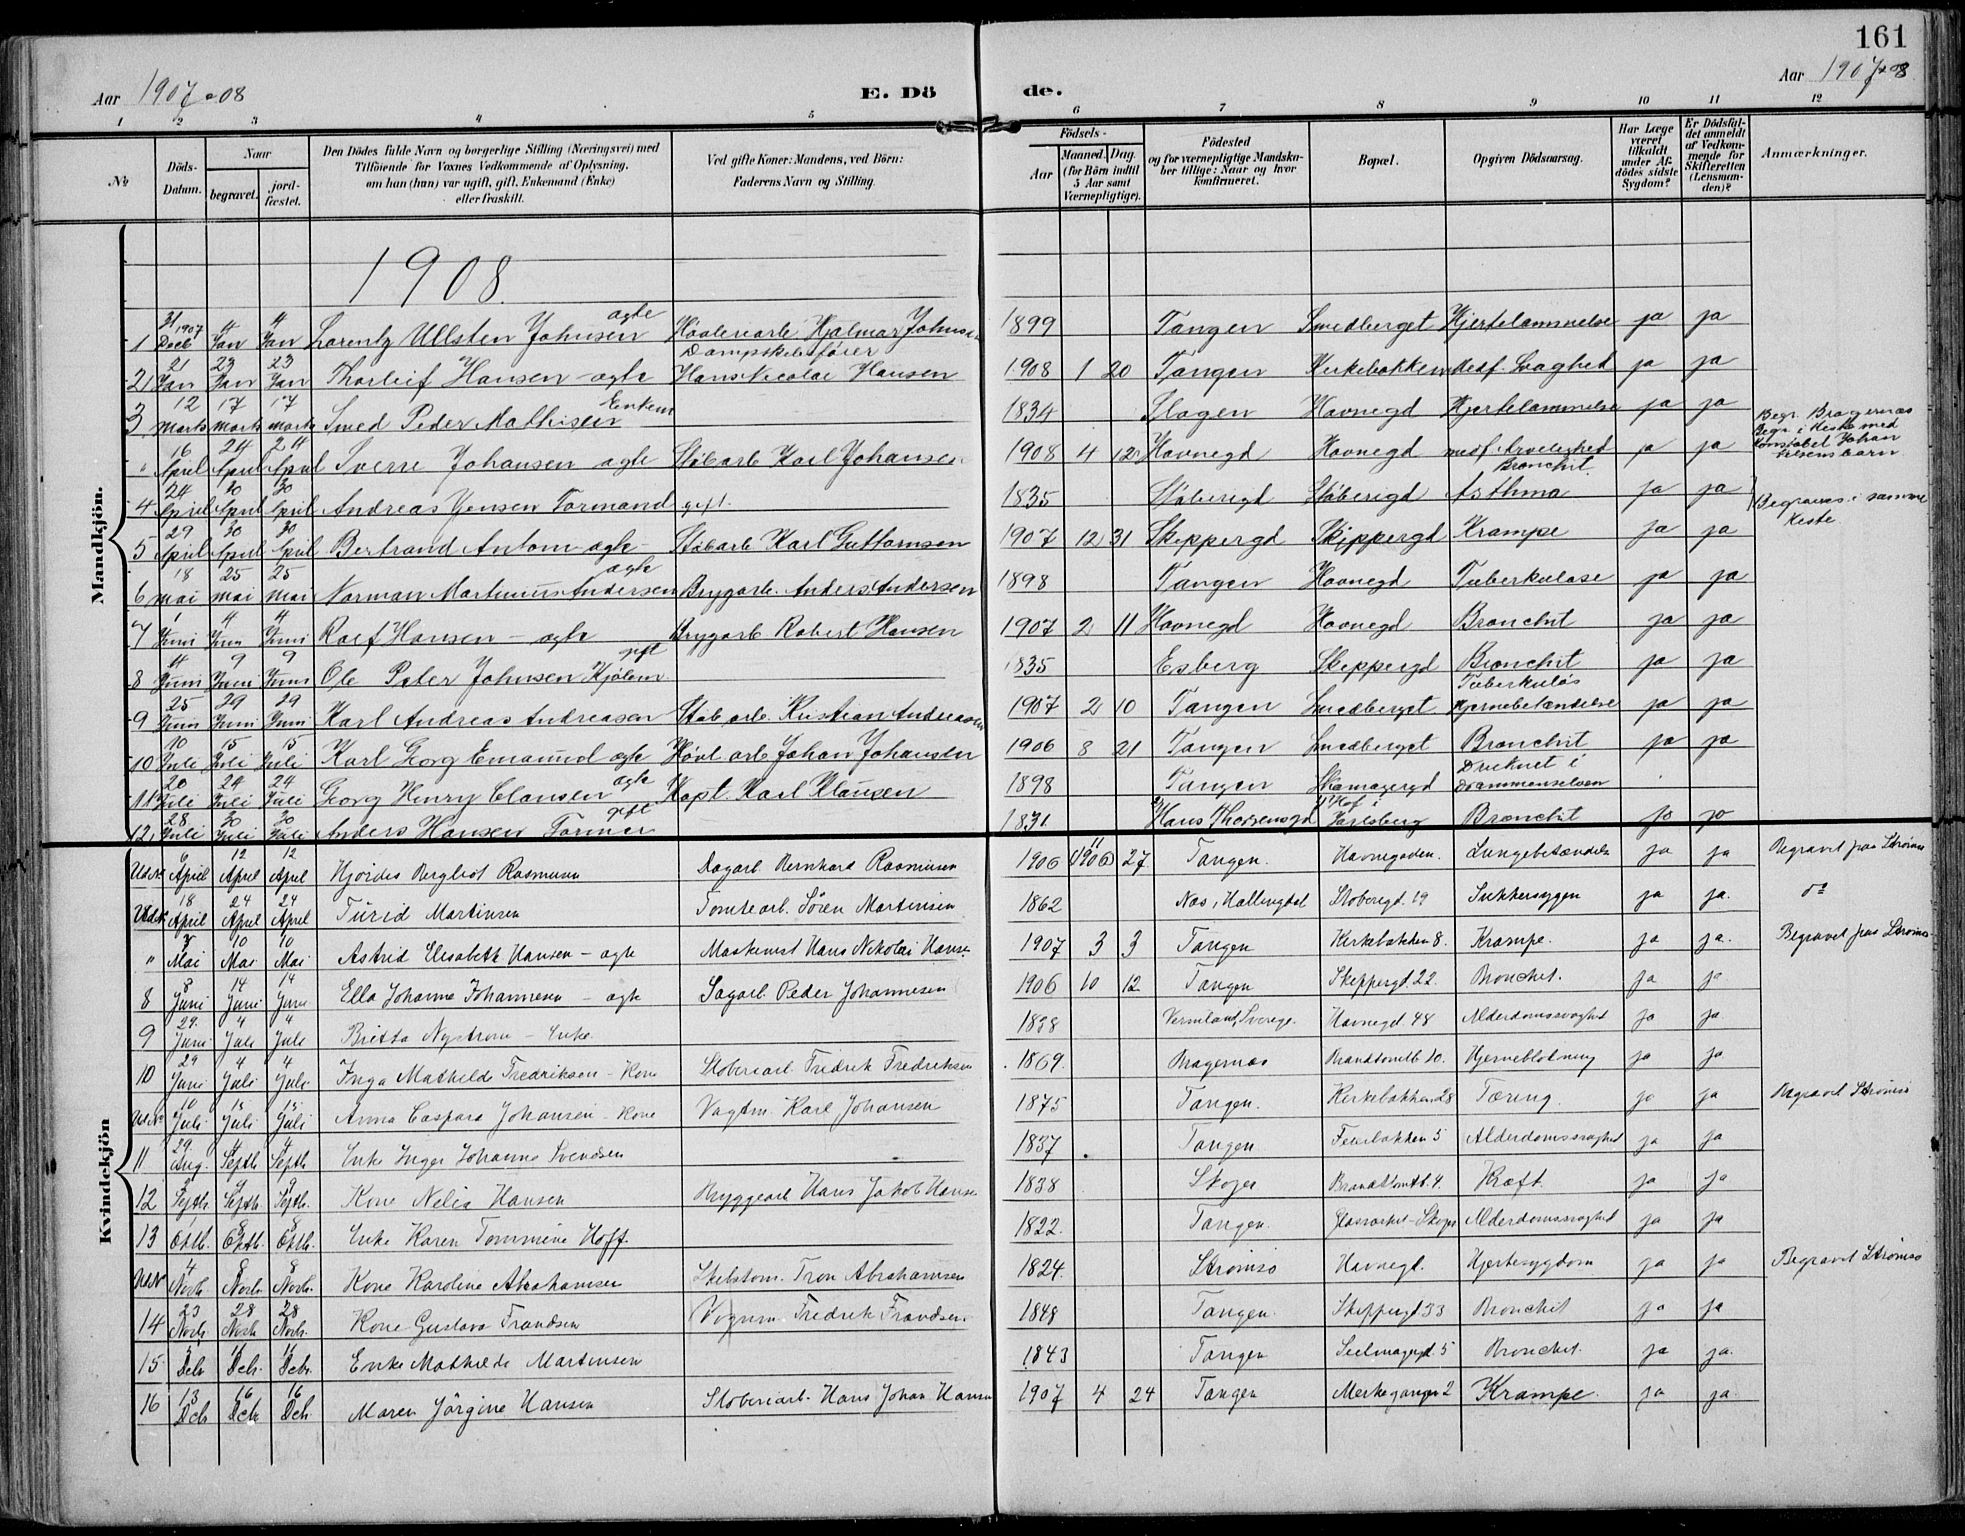 161
Aar 1907 & 08
E. Dö de.
Aar 1907 & 08
1 2 3 4 5 6 7 8 9 10 11 12
No
Döds-Datum.
Naar
begravet.
jord-fæstet.
Den Dödes fulde Navn og borgerlige Stilling (Næringsvei) med
Tilföiende for Voxnes Vedkommende af Oplysning,
om han (hun) var ugift, gift, Enkemand (Enke)
eller fraskilt.
Ved gifte Koner: Mandens, ved Börn:
Faderens Navn og Stilling.
Födsels-
Aar
Maaned. Dag.
(for Börn indtil
5 Aar samt
Værnepligtige).
Födested
og for værnepligtige Mandska-
ber tillige: Naar og hvor
konfirmeret.
Bopæl.
Opgiven Dödsaarsag.
Har Læge
været
tilkaldt
under Af-
dödes sidste
Sygdom?
Er Dödsfal-
det anmeldt
af Vedkom-
mende for
Skifteretten
(Lensman-
den)?
Anmærkninger.
Mandkjön.
1908
1 31 1907 Decb 4 Jan 4 Jan Lorentz Ullsten Johnsen ægte Høvleriarb. Hjalmar Johnsen 1899 Tangen Smedberget Hjertelammelse ja ja
2 21 Jan 23 Jan 23 Jan Thorleif Hansen - ægte Dampskibsfører Hans Nicolai Hansen 1908 1 20 Tangen Kirkebakken Medf. Svaghed ja ja
3 12 Marts 17 Marts 17 Marts Smed Peder Mathisen Enkem 1834 Slagen Havnegd Hjertelammelse ja ja
" 16 April 24 April 24 April Sverre Johansen ægte Støbarb Karl Johansen 1908 4 12 Havnegd Havnegd medf. Bronchit ja ja Begr. Bragernæs Begr. i Kiste med Konstabel Johan barn
4 24 April 30 April 30 April Andreas Jensen Formand gift. 1835 Støberigd Støberigd Asthma ja ja Begraves i samme Kiste
5 29 April 30 April 30 April Bertrand Antom ægte - Støbarb Karl Guttormsen 1907 12 31 Skippergd Skippergd Krampe ja ja
6 18 mai 25 mai 25 mai Norman Martinius Andersen ægte Brygarb. Anders Andersen 1898 Tangen Havnegd Tuberkulose ja ja
7 1 Juni 4 Juni 4 Juni Rolf Hansen - ægte Brygarb Robert Hansen 1907 2 11 Havnegd Havnegd Bronchit ja ja
8 4 Juni 9 Juni 9 Juni Ole Peter Johnsen Kjølem gift 1835 Esberg Skippergd Bronchit ja ja
9 25 Juni 29 Juni 29 Juni Karl Andreas Andreasen Støbarb. Kristian Andreasen 1907 2 10 Tangen Smedberget Tuberkuløs Hjernebetændelse ja ja
10 10 Juli 15 Juli 15 Juli Karl Georg Emanuel ægte Høvl. arb Johan Johansen 1906 8 21 Tangen Smedberget Bronchit ja ja
11 20 Juli 24 Juli 24 Juli Georg Henry Clausen ægte Kapt. Karl Klausen 1898 Tangen Skomagergd Druknet i Drammenselven
12 28 Juli 30 Juli 30 Juli Anders Hansen Former gift 1831 Hans Thorsensgd Hof i Jarlsberg Bronchit ja ja
Kvindekjön
Ud.No 6 April 12 April 12 April Hjördis Bergliot Rasmusen Dagarb Bernhard Rasmusen 1906 11 (1906) 27 Tangen. Havnegaden. Lungebetændelse ja ja Begravet paa Strømsø
Ud.No 18 April 24 April 24 April Turid Martinsen Tomtearb. Sören Martinsen 1862 Næs, Hallingdal Støberigd. 19 Sukkersygen ja ja. do
" 3 Mai 10 Mai 10 Mai Astrid Elisabeth Hansen - ægte Maskinist Hans Nikolai Hansen 1907 3 3 Tangen Kirkebakken 8. Krampe. ja ja. Begravet paa Strømsø
8 8 Juni 14 Juni 14 Juni Ella Johanne Johannesen - ægte Sagarb. Peder Johannesen 1906 10 12 Tangen Skippergd. 22. Bronchit. ja ja
9 29. Juni 4 Juli 4 Juli Britta Nystrøm - Enke. 1838 Vermland, Sverige. Havnegd. 48 Alderdomssvaghed ja ja.
10 29 Juni 4 Juli 4 Juli Inga Mathilde Fredriksen - Kone Støberiarb. Fredrik Fredriksen 1869. Bragernæs Brandtomtb. 10. Hjerneblødning ja ja
Ud.No 10 Juli 15 Juli 15 Juli Anna Caspara Johansen - Kone Vagtm. Karl Johansen 1875 Tangen. Kirkebakken 28 Tæring. ja ja Begravet Strømsø
11 29. Aug. 4 Septb 4 Septb Enke Inger Johanne Svendsen 1837 Tangen Feierbakken 5 Alderdomssvaghed ja ja
12 3 Septb. 9 Septb. 9 Septb. Kone Nelia Hansen Bryggearb Hans Jakob Hansen 1838 Skoger Brandtomtb. 4. Kræft. ja ja
13 1 Oktb. 8 Oktb. 8 Oktb. Enke Karen Tommine Hoff. 1822. Tangen. Glasværket - Skoger Alderdomssvaghed ja ja
Ud.No 4 Novb 8 Novb. 8 Novb. Kone Karoline Abrahamsen Skibstøm. Tron Abrahamsen 1824. Strømsø Havnegd. Hjertesygdom ja ja Begravet Strømsø
14 23 Novb. 28 Novb 28 Novb. Kone Gustava Frandsen Vognm. Fredrik Frandsen. 1848 Tangen. Skippergd 33 Bronchit ja ja
15. Decb Decb. Decb. Enke Mathilde Martinsen 1843 Tangen Seilmagergd. 5 Bronchit. ja ja.
16 13 Decb 16 Decb 16 Decb. Maren Jörgine Hansen Støberiarb. Hans Johan Hansen 1907 4 24 Tangen Merkegangen 2 Krampe. ja ja.